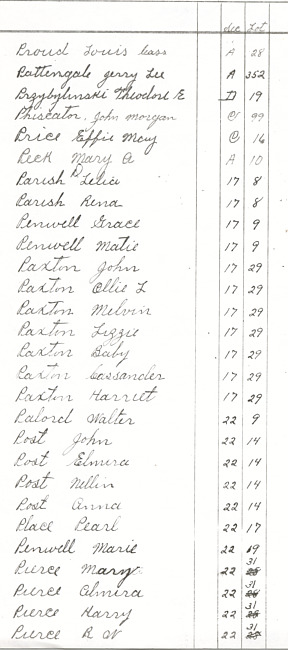 Sec Lot
Proud Louis Cass A 28
Pattengale Jerry Lee A 352
Przybylinski Theodore E D 19
Phiscator, John Morgan C 99
Price Effie May C 16
Peck Mary A 10
Parish Lelia 17 8
Parish Rena 17 8
Penwell Grace 17 9
Penwell Matie 17 9
Paxton John 17 29
Paxton Ollie L 17 29
Paxton Melvin 17 29
Paxton Lizzie 17 29
Paxton Baby 17 29
Paxton Cassander 17 29
Paxton Harriet 17 29
Palord Walter 22 9
Post John 22 14
Post Elmira 22 14
Post Nellin 22 14
Post Anna 22 14
Place Pearl 22 17
Penwell Marie 22 19
Pierce Mary 22 31
Pierce Almira 22 31
Pierce Harry 22 31
Pierce R W 22 31